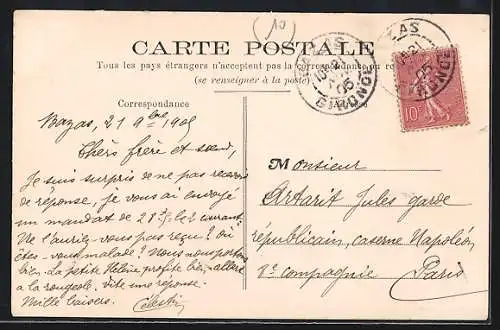 (10)
CARTE POSTALE
Tous les pays étrangers n'acceptent pas la correspondance au
(se renseigner à la poste)
BAZAS
GIRONDE
05
10c
Correspondance
Bazas, 21 9bre 1905
Chers frère et sœur,
Je suis surpris de ne pas recevoir
de réponse, je vous ai envoyé
un mandat de 28 f, le 2 courant.
Ne l'auriez-vous pas reçu ? Où
êtes-vous malade ? Nous nous portons
bien. La petite Hélène profite bien, elle a
la rougeole. Vite une réponse.
Mille baisers.
Célestin
Monsieur
Artarit Jules garde
républicain, caserne Napoléon,
8e compagnie Paris